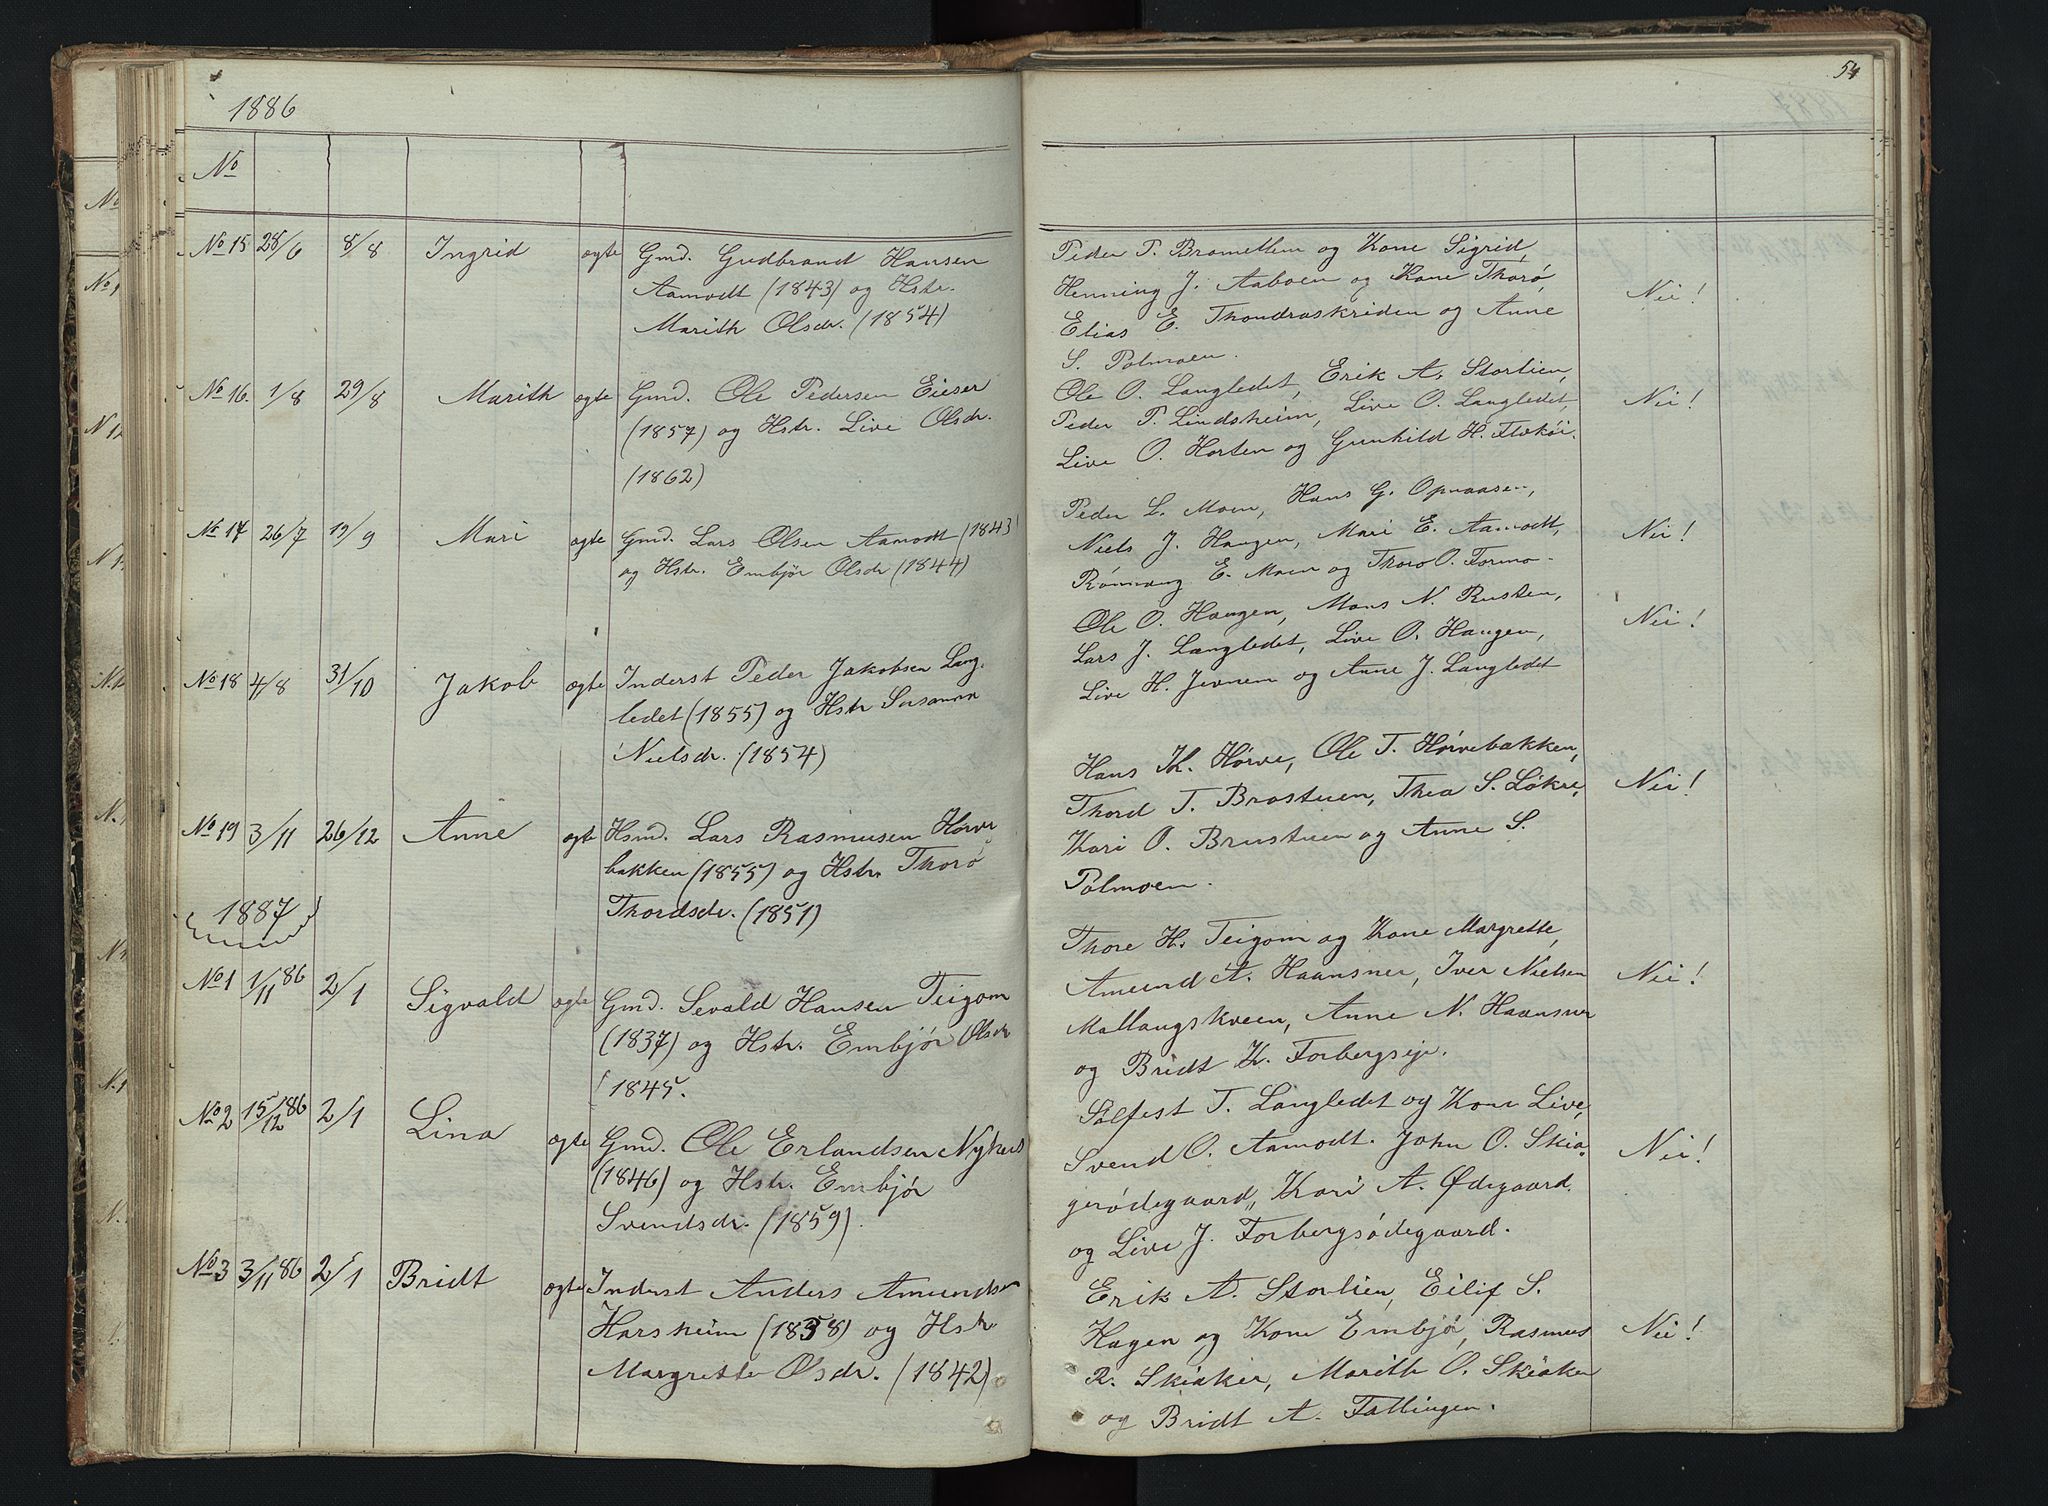 1886
54
No
No 15 28/6 8/8 Ingrid ægte Gmd. Gudbrand Hansen
Aamodt (1843) og Hstr.
Marith Olsdr. (1854)
Peder T. og Kone Sigrid,
Henning J. Aaboen og Kone Thorø,
Elias E. og Anne
S. Polmoen.
Nei!
No 16. 1/8 29/8 Marith ægte Gmd. Ole Pedersen
(1857) og Hstr. Live Olsdr.
(1862)
Ole O. Langledet, Erik A. Storlien,
Peder P. Lindsheim, Live O. Langledet,
Live O. Horten og Gunhild H. Flækøi.
Nei!
No 17 26/7 19/9 Mari ægte Gmd. Lars Olsen Aamodt (1843)
og Hstr. Embjør Olsdr (1844)
Peder L. Moen, Hans G. Opnaasen,
Niels J. Haugen, Mari E. Aamodt,
Rønnaug E. Moen og Thoro O. Formo-
Nei!
No 18 4/8 31/10 Jakob ægte Inderst Peder Jakobsen Lang-
ledet (1855) og Hstr Susanna
Nielsdr. (1854)
Ole O. Haugen, Mons N. Rusten,
Lars J. Langledet, Live O. Haugen,
Live H. Jevnem og Anne J. Langledet
Nei!
No 19 3/11 26/12 Anne ægte Hsmd. Lars Rasmusen Hørve
bakken (1855) og Hstr. Thorø
Thordsdr. (1851)
Hans Th. Hørve, Ole T. Hørvebakken,
Thord T. Brustuen, Thea S. Løkre,
Kari O. Brustuen og Anne S.
Polmoen.
Nei!
1887
No 1 1/11 86 2/1 Sigvald ægte Gmd. Sevald Hansen Teigom
(1837) og Hstr. Embjør Olsdr
(1845.
Thore H. Teigom og Kone Margrette,
Amund A. Haansner, Iver Nielsen
Mallangskveen, Anne N. Haansner
og Bridt K. Forbergseje.
Nei!
No 2 15/12 86 2/1 Lina ægte Gmd. Ole Erlandsen
(1846) og Hstr. Embjør
Svendsdr. (1859).
Solfest T. Langledet og Kone Live,
Svend O. Aamodt. John O. Skia-
gerødegaard, Kari A. Ødegaard.
og Live J. Forbergsødegaard.
Nei!
No 3 3/11 86 2/1 Bridt ægte Inderst Anders Amundsen
Harsheim (1858) og Hstr
Margrette Olsdr. (1842)
Erik A. Storlien, Eilif S.
Hagen og Kone Embjø, Rasmus
R. Skiaker, Marith O. Skiaker
og Bridt A. Fallingen.
Nei!